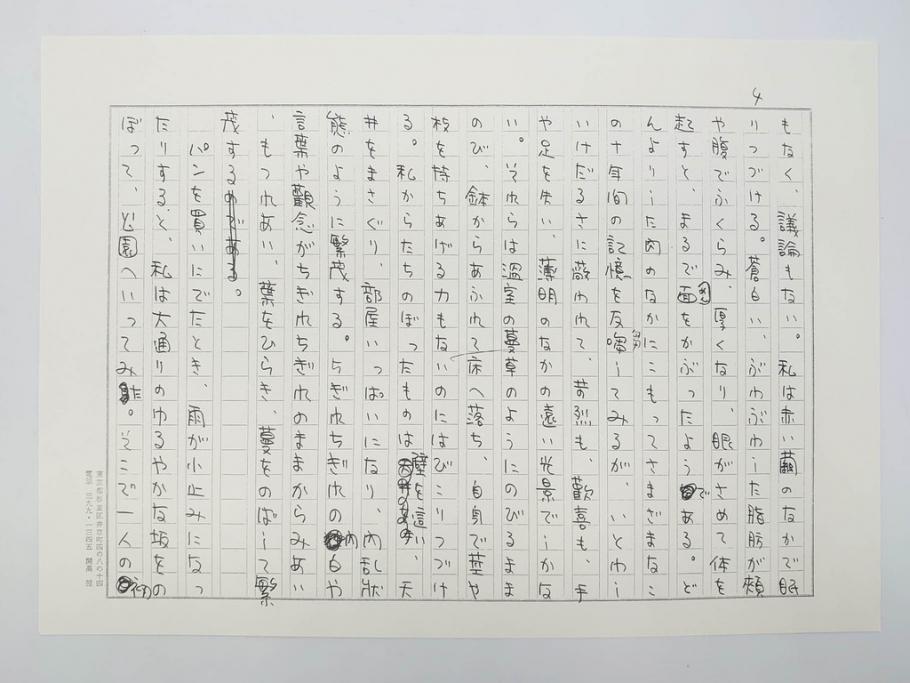 4
もなく、議論もない。私は赤い繭のなかで眠
りつづける。蒼白い、ぶわぶわした脂肪が頰
や腹でふくらみ、厚くなり、眼がさめて体を
起すと、まるで面をかぶったようである。ど
んよりした肉のなかにこもってさまざまなこ
の十年間の記憶を反芻してみるが、いとわし
いけだるさに蔽われて、苦烈も、歓喜も、手
や足を失い、薄明のなかの遠い光景でしかな
い。それらは温室の蔓草のようにのびるまま
のび、鉢からあふれて床へ落ち、自身で茎や
枝を持ちあげる力もないのにはびこりつづけ
る。私からたちのぼったものは壁を這い、天
井をまさぐり、部屋いっぱいになり、内乱状
態のように繁茂する。ちぎれちぎれの内白や
言葉や觀念がちぎれちぎれのままからみあい
、もつれあい、葉をひらき、蔓をのばして繁
茂する。
パンを買いにでたとき、雨が小止みになっ
たりすると、私は大通りのゆるやかな坂をの
ぼって、公園へいってみた。そこで一人の初
東京都杉並区井草町四の八の十四
電話 三九九・一三四五 開高 健